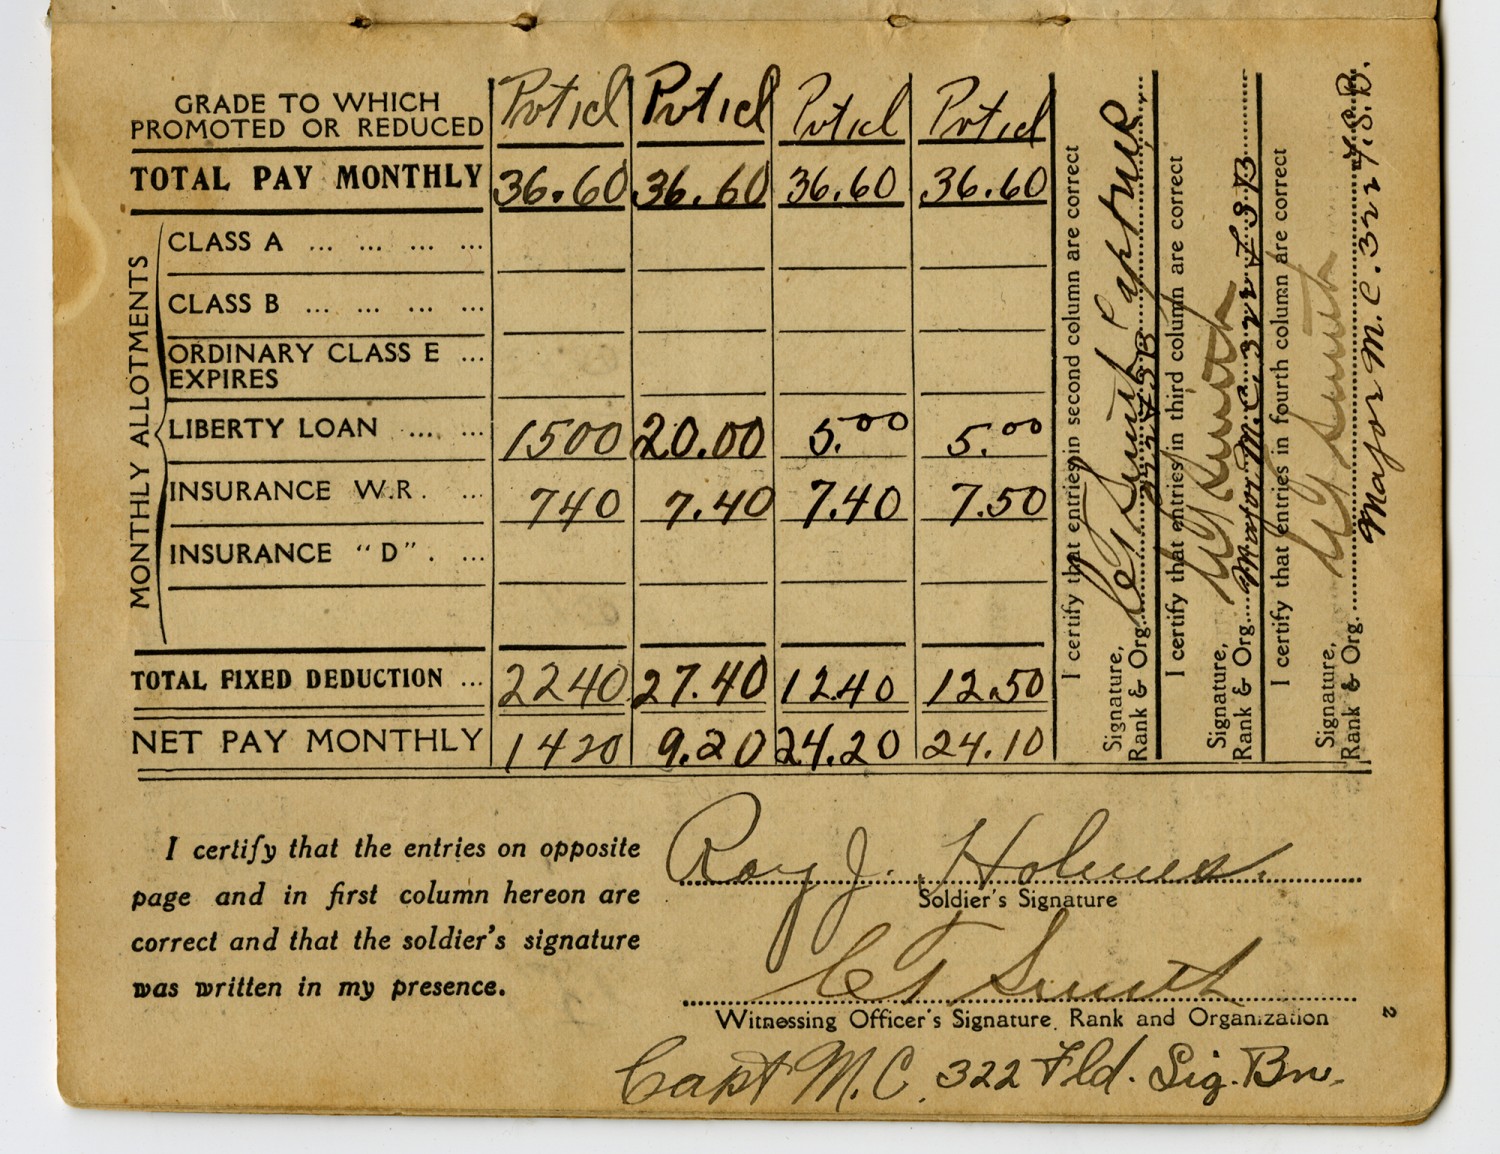 GRADE TO WHICH PROMOTED OR REDUCED Pvt 1cl Pvt 1cl Pvt 1cl Pvt 1cl
TOTAL PAY MONTHLY 36.60 36.60 36.60 36.60
MONTHLY ALLOTMENTS
CLASS A ... ... ... ...
CLASS B ... ... ... ...
ORDINARY CLASS E ...
EXPIRES
LIBERTY LOAN ... ... 1500 20.00 5.00 5.00
INSURANCE W.R. ... 740 7.40 7.40 7.50
INSURANCE "D". ...
TOTAL FIXED DEDUCTION ... 2240 27.40 12.40 12.50
NET PAY MONTHLY 1420 9.20 24.20 24.10
I certify that entries in second column are correct
Signature, C T Smith Capt MC
Rank & Org. 322 F S B
I certify that entries in third column are correct
Signature, C T Smith
Rank & Org. Major M.C. 322 F S B
I certify that entries in fourth column are correct
Signature, C T Smith
Rank & Org. Major M.C. 322 F.S.B.
I certify that the entries on opposite
page and in first column hereon are
correct and that the soldier's signature
was written in my presence.
Roy J. Holmes.
Soldier's Signature
C T Smith
Witnessing Officer's Signature, Rank and Organization
Capt M.C. 322 Fld. Sig. Bn.
2